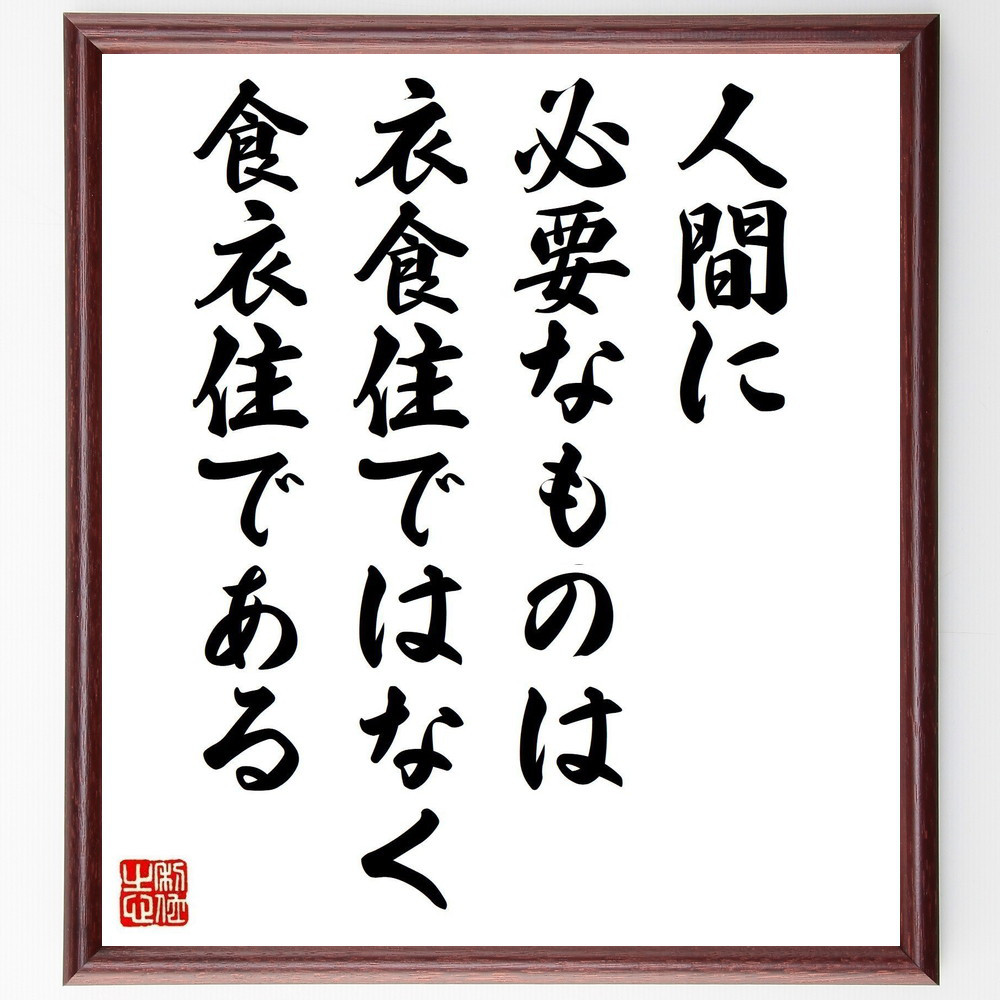 人間に
必要なものは
衣食住ではなく
食衣住である